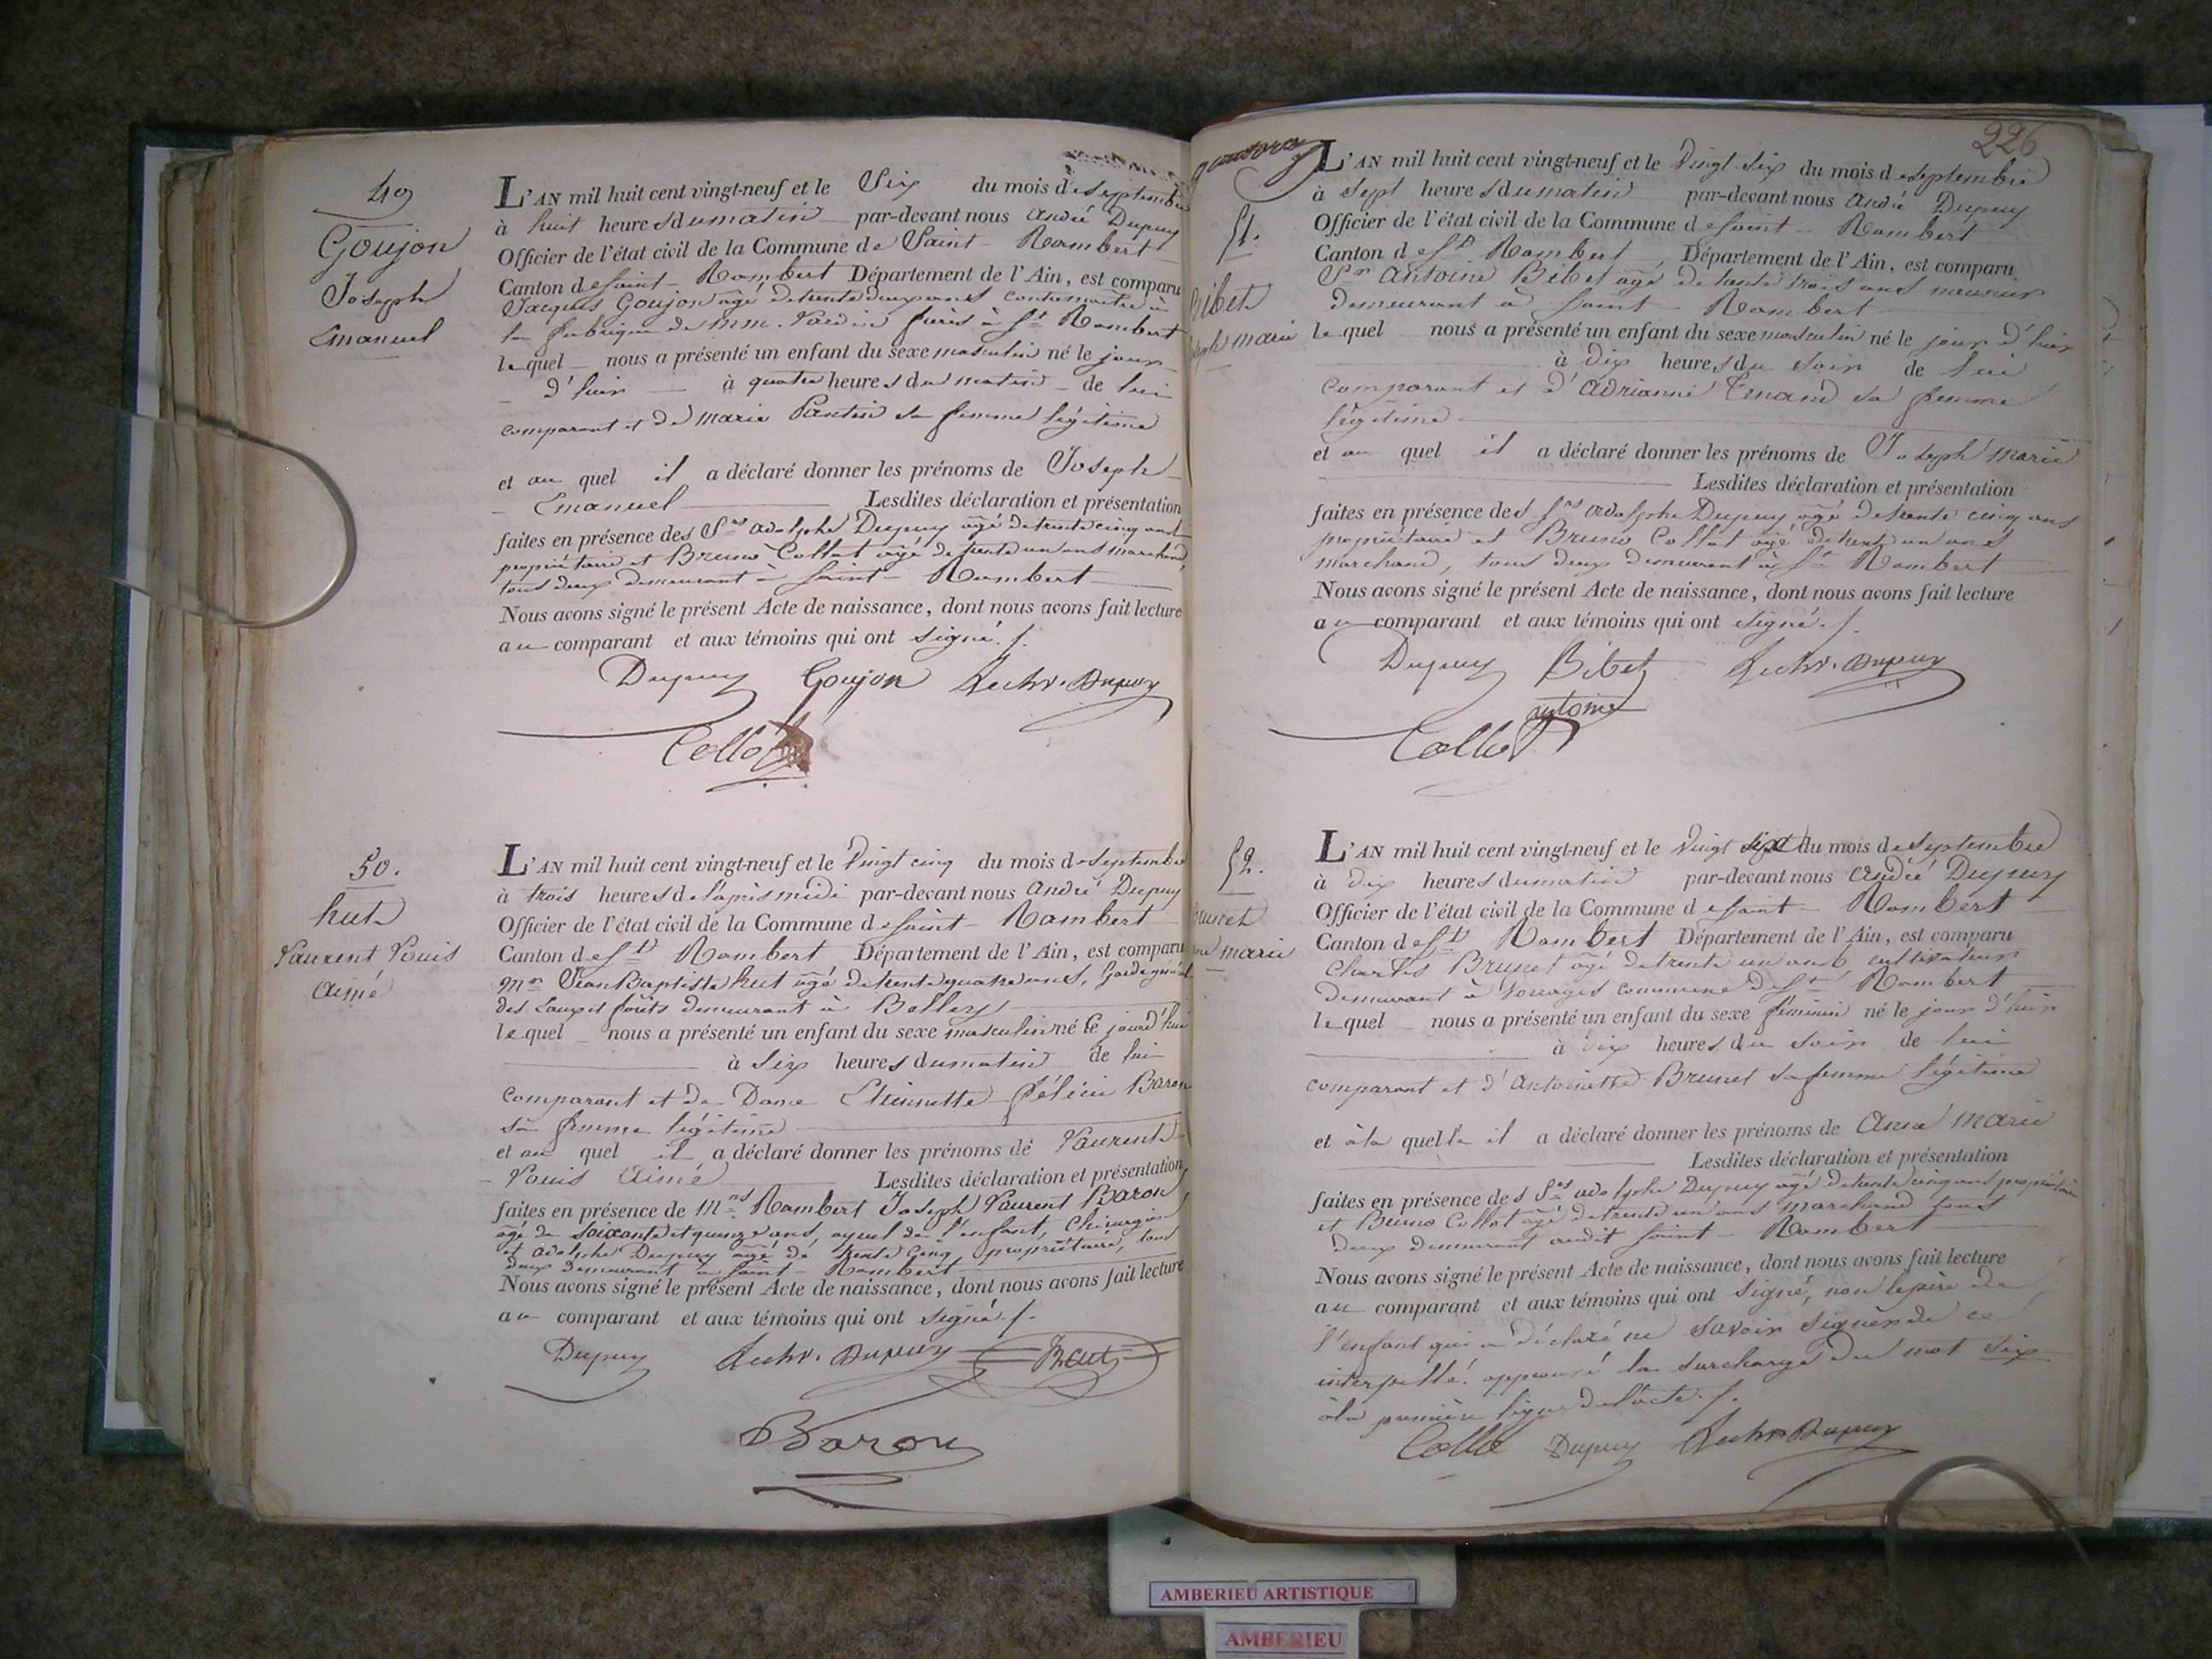 49
Goujon
Joseph
Emanuel
L'AN mil huit cent vingt-neuf et le Six du mois de septembre
à huit heures du matin par-devant nous André Dupuy
Officier de l'état civil de la Commune de Saint-Rambert
Canton de Saint-Rambert Département de l'Ain, est comparu
Jacques Goujon agé de trente deux ans contremaitre à
la fabrique de MM. à St Rambert
lequel nous a présenté un enfant du sexe masculin né le jour
d'hier à quatre heures du matin de lui
comparant et de Marie Pantin sa femme légitime
et au quel il a déclaré donner les prénoms de Joseph
Emanuel Lesdites déclaration et présentation
faites en présence des Srs adolphe Dupuy agé de trente cinq ans
propriétaire et Bruno Collot agé de trente un ans marchand,
tous deux demeurant à Saint-Rambert
Nous avons signé le présent Acte de naissance, dont nous avons fait lecture
au comparant et aux témoins qui ont signé.
Dupuy Goujon Dupuy
Collot
50.
hut
Laurent Louis
Aimé
L'AN mil huit cent vingt-neuf et le Vingt cinq du mois de Septembre
à trois heures de l'après midi par-devant nous André Dupuy
Officier de l'état civil de la Commune de Saint-Rambert
Canton de St Rambert Département de l'Ain, est comparu
Mr Jean Baptiste hut agé de trente quatre ans, garde général
des Eaux et forêts demeurant à Belley
lequel nous a présenté un enfant du sexe masculin né le jourd'hui
à Six heures du matin de lui
comparant et de Dame Etiennette Félicie Baron
sa femme légitime
et au quel il a déclaré donner les prénoms de Laurent
Louis Aimé Lesdites déclaration et présentation
faites en présence de Mrs Rambert Joseph Laurent Baron
agé de soixante et quinze ans, ayeul de l'enfant, Chirurgien
et adolphe Dupuy agé de trente cinq, propriétaire, tous
deux demeurant à Saint-Rambert
Nous avons signé le présent Acte de naissance, dont nous avons fait lecture
au comparant et aux témoins qui ont signé.
Dupuy Dupuy hut
Baron
226
51.
Bibet
Joseph marie
L'AN mil huit cent vingt-neuf et le Vingt Six du mois de septembre
à sept heures du matin par-devant nous André Dupuy
Officier de l'état civil de la Commune de Saint-Rambert
Canton de St Rambert, Département de l'Ain, est comparu
Sr Antoine Bibet agé de trente trois ans meunier
demeurant à Saint-Rambert
lequel nous a présenté un enfant du sexe masculin né le jour d'hier
à dix heures du soir de lui
comparant et d'Adrianne Tenand sa femme
légitime
et au quel il a déclaré donner les prénoms de Joseph Marie
Lesdites déclaration et présentation
faites en présence des Srs adolphe Dupuy agé de trente cinq ans
propriétaire et Bruno Collot agé de trente un ans
marchand, tous deux demeurant à St Rambert
Nous avons signé le présent Acte de naissance, dont nous avons fait lecture
au comparant et aux témoins qui ont signé.
Dupuy Bibet Dupuy
antoine
Collot
52.
Brunet
marie
L'AN mil huit cent vingt-neuf et le Vingt six du mois de Septembre
à dix heures du matin par-devant nous André Dupuy
Officier de l'état civil de la Commune de Saint-Rambert
Canton de St Rambert Département de l'Ain, est comparu
Charles Brunet agé de trente un ans cultivateur
demeurant à Vorages commune de St Rambert
lequel nous a présenté un enfant du sexe féminin né le jour d'hier
à dix heures du soir de lui
comparant et d'Antoinette Brunet sa femme légitime
et à la quelle il a déclaré donner les prénoms de Anne Marie
Lesdites déclaration et présentation
faites en présence des Srs adolphe Dupuy agé de trente cinq ans propriétaire
et Bruno Collot agé de trente un ans marchand tous
deux demeurant audit Saint-Rambert
Nous avons signé le présent Acte de naissance, dont nous avons fait lecture
au comparant et aux témoins qui ont signé, non le père de
l'enfant qui a déclaré ne savoir signer de ce
interpellé. approuvé la surcharge du mot six
à la première ligne de l'acte.
Collot Dupuy Dupuy
AMBERIEU ARTISTIQUE
AMBERIEU